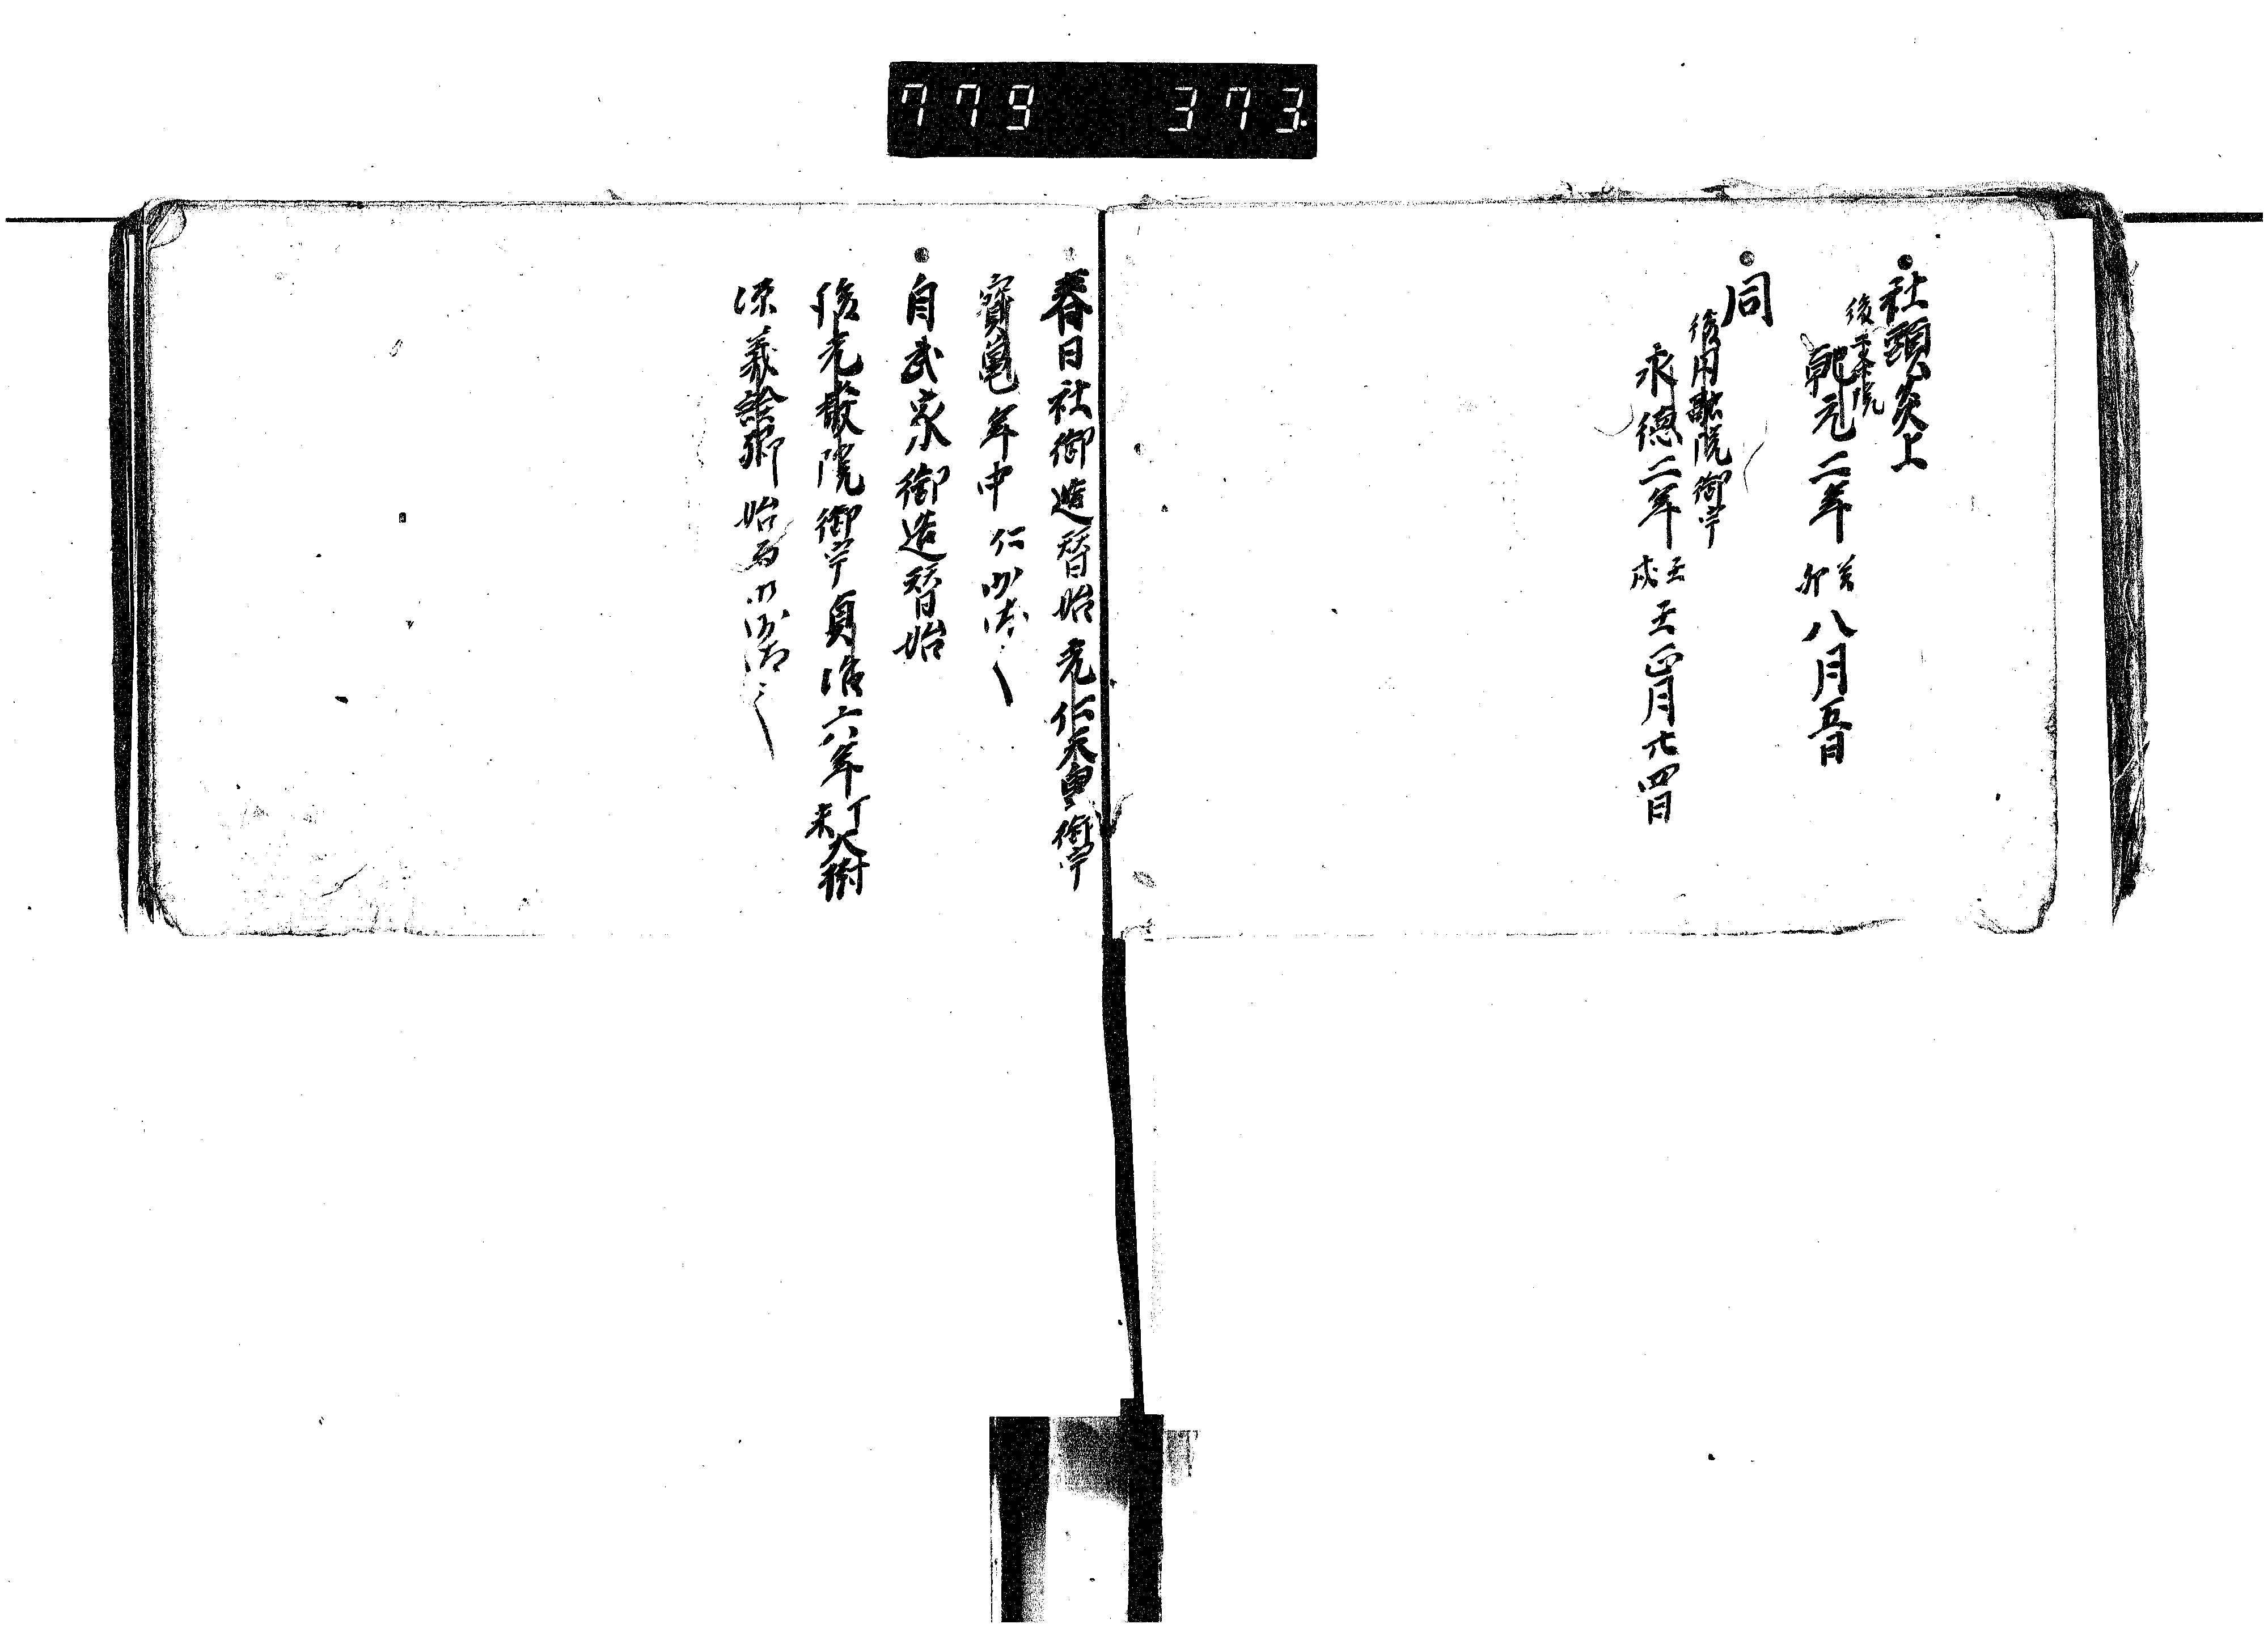 779 373
社頭炎上
後二条院
乾元二年癸卯八月五日
同
後円融院御宇
永徳二年壬戌壬正月廿四日
春日社御造替始光仁天皇御宇
寳亀年中
自武家御造替始
後光厳院御宇貞治六年丁未大樹
源義詮卿始而